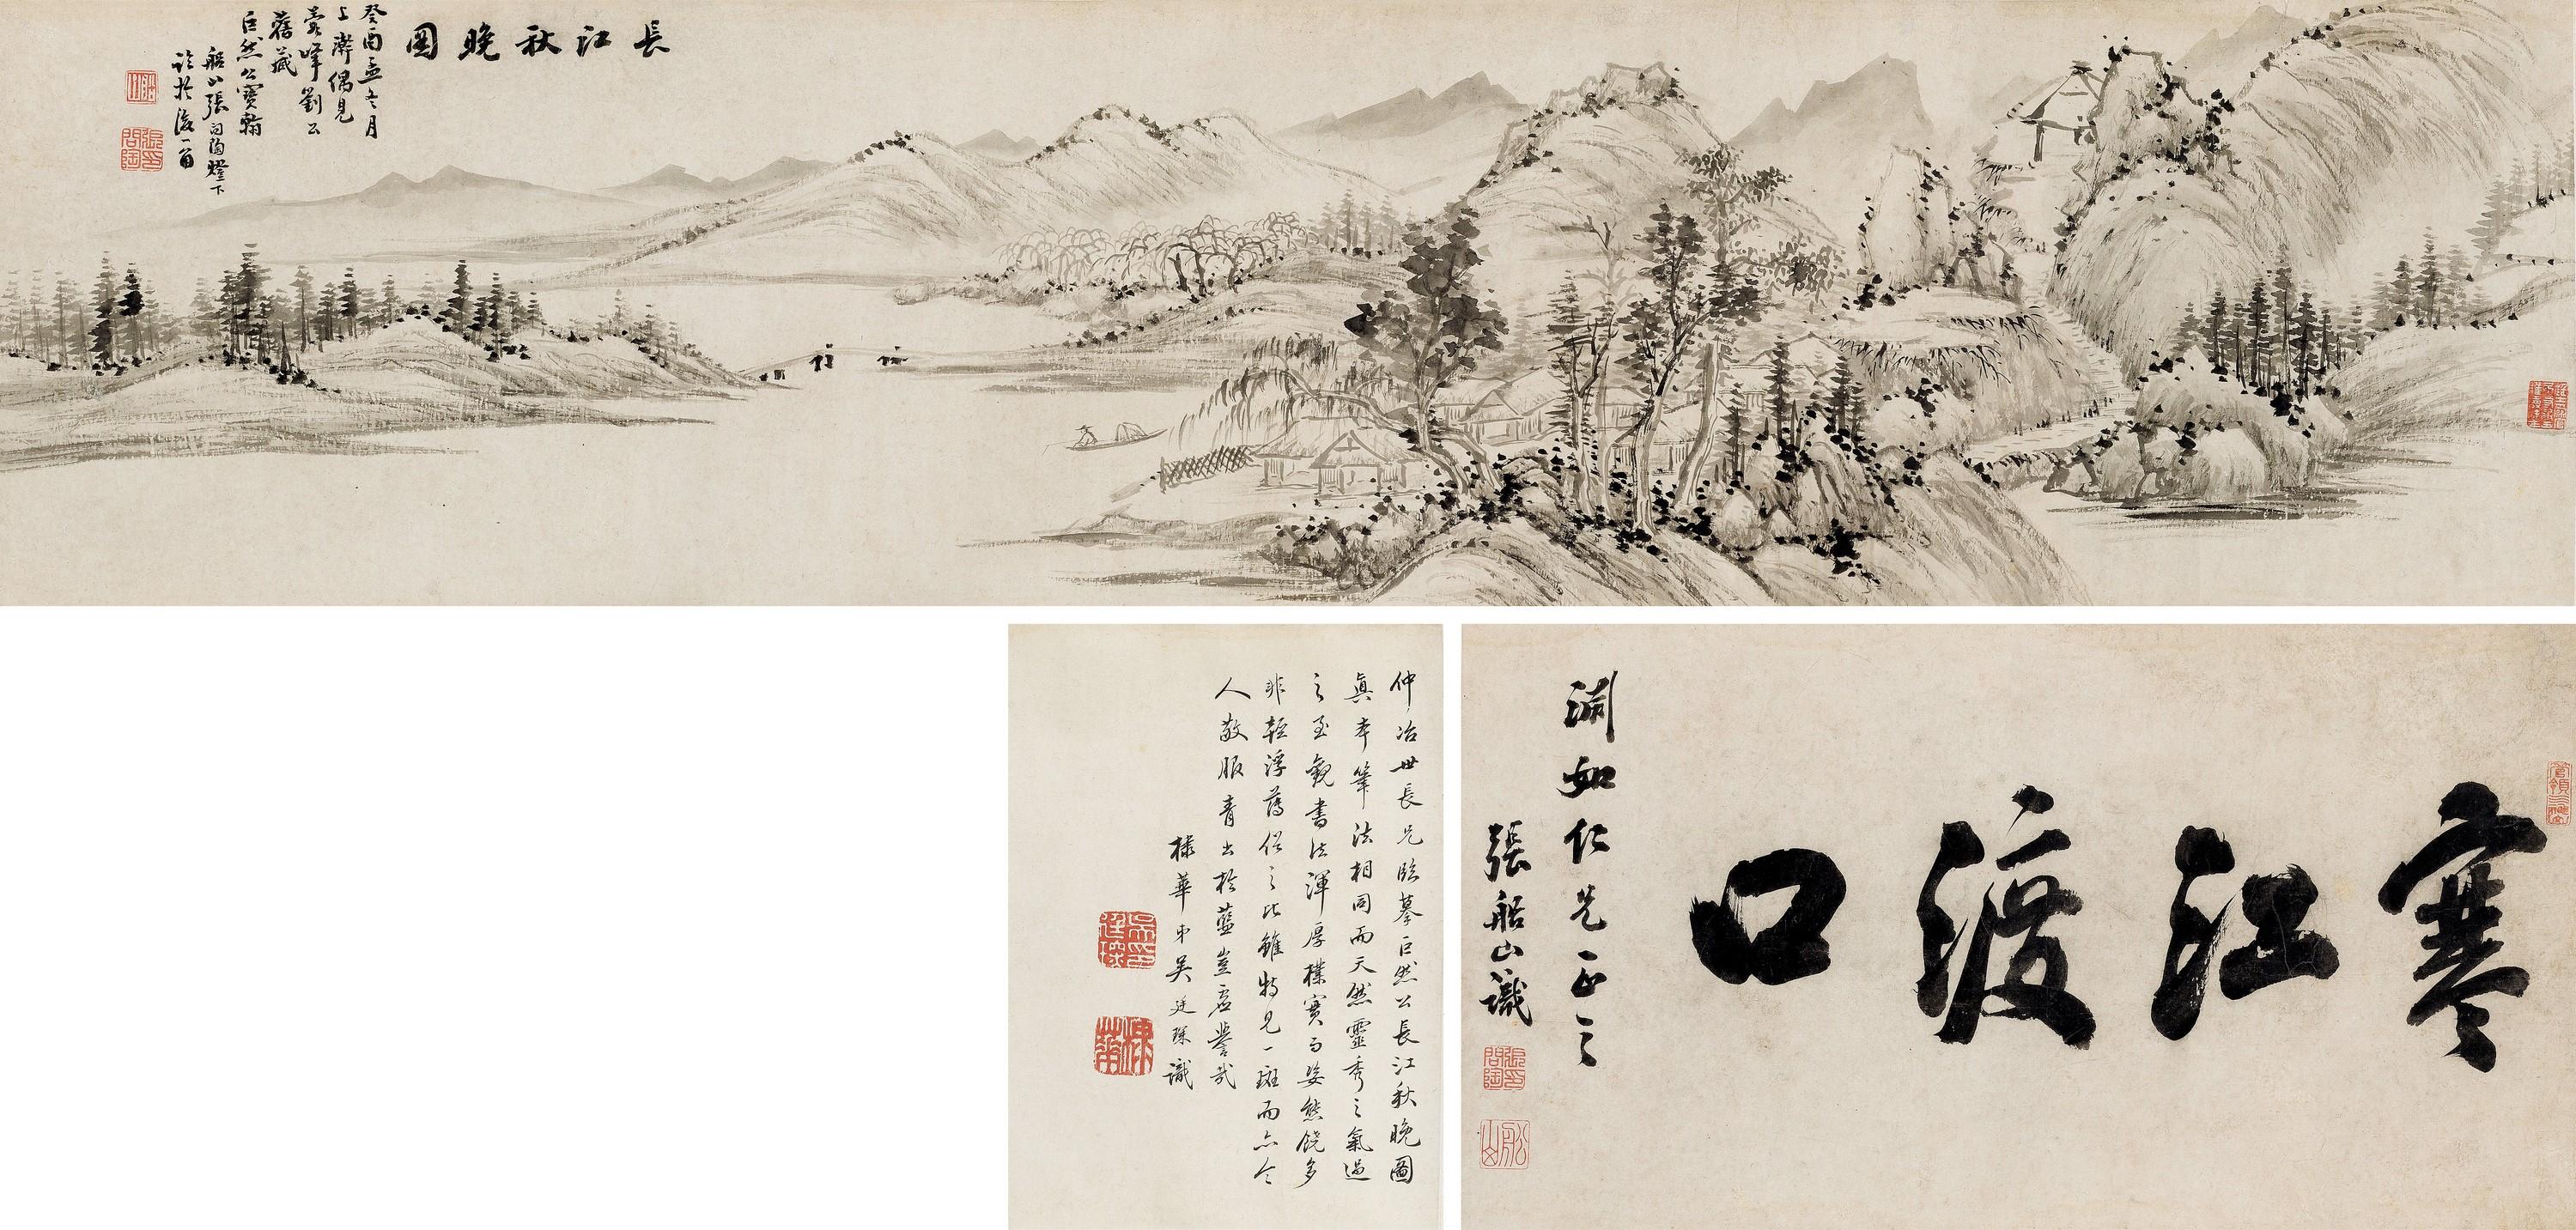 長江秋晚圖
癸酉孟冬月
上澣偶見
雲峰劉公
舊藏
巨然公寶翰
船山張問陶燈下
臨於後一角
寒江渡口
淵如仁兄正之
張船山識
仲冶世長兄臨摹巨然公長江秋晚圖
真本筆法相同而天然靈秀之氣過
之至觀書法渾厚樸實而姿態饒多
非輕浮薄俗之比雖特見一斑而亦令
人敬服青出於藍豈虛譽哉
棣華弟吳廷琛識